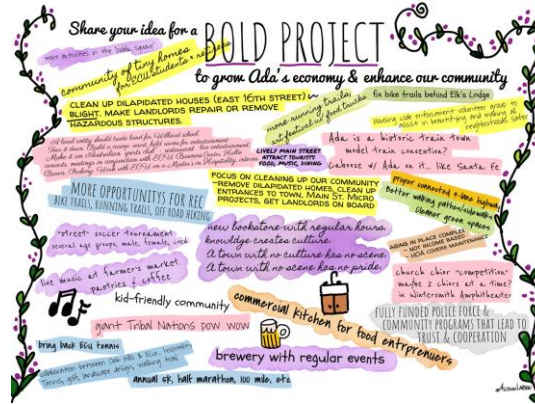 Share your idea for a
BOLD PROJECT
to grow Ada's economy & enhance our community
more activities in the Public Square
community of tiny homes
for ECU students &
CLEAN UP DILAPIDATED HOUSES (EAST 16TH STREET)
BLIGHT. MAKE LANDLORDS REPAIR OR REMOVE
HAZARDOUS STRUCTURES.
more running trails,
art festival w/ food trucks
fix bike trails behind Elk's Lodge
Housing code enforcement volunteer group to
assist in beautifying and making
neighborhoods safer
A local entity should trade land for Wilson school.
Make it an
meetings in conjunction with ECU Business Center,
Work with ECU on a Master's in Hospitality,
LIVELY MAIN STREET
ATTRACT TOURISTS
FOOD, MUSIC, DINING
Ada is a historic train town
model train convention?
Caboose w/ Ada on it.. like Santa Fe
MORE OPPORTUNITYS FOR REC
BIKE TRAILS, RUNNING TRAILS, OFF ROAD HIKING
FOCUS ON CLEANING UP OUR COMMUNITY
-REMOVE DILAPIDATED HOMES, CLEAN UP
ENTRANCES TO TOWN, MAIN ST. MICRO
PROJECTS, GET LANDLORDS ON BOARD
proper connected 4-lane highway
Better walking paths/sidewalks
Cleaner green spaces
"street" soccer tournament
several age groups, male, female, coed
new bookstone with regular hours.
knowldge creates culture.
A town with no culture has no scene.
A town with no scene has no pride.
AGING IN PLACE COMPLEX
- NOT INCOME BASED
- HOA COVERS MAINTENANCE
live music at farmer's market.
pastries & coffee
church choir "competition"
maybe 2 choirs at a time?
in Wintersmith Amphitheater
kid-friendly community
giant Tribal Nations pow wow
commercial kitchen for food entrprenuers
FULLY FUNDED POLICE FORCE &
COMMUNITY PROGRAMS THAT LEAD TO
TRUST & COOPERATION
bring back ECU tennis
brewery with regular events
collaboration between Oak Hills & ECU, hospitality
Tennis, golf, landscape design, walking trail
annual 5k, half marathon, 100 mile, etc